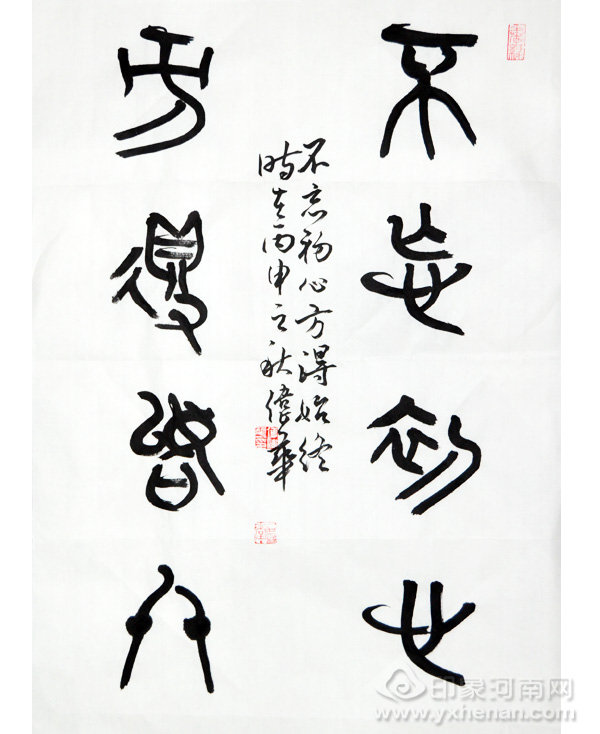 不忘初心
方得始终
不忘初心方得始終
時在丙申立秋德華
印象河南网
www.yxhenan.com